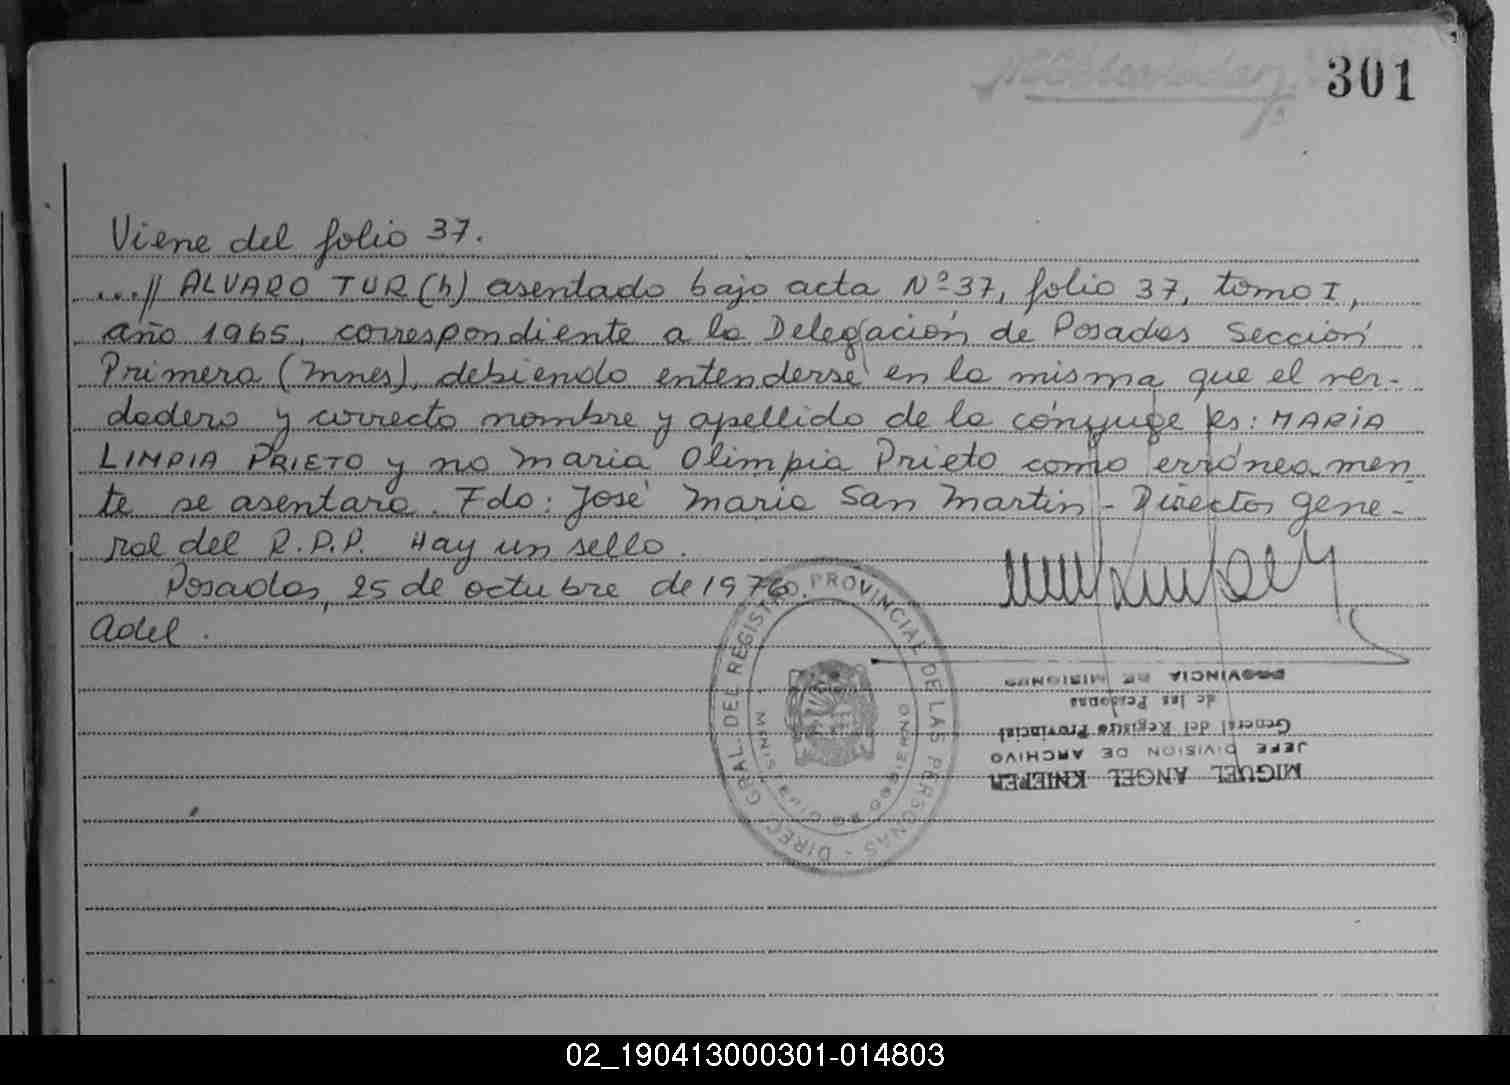 301
Viene del folio 37.
...// ALVARO TUR (h) asentado bajo acta Nº 37, folio 37, tomo I,
año 1965, correspondiente a la Delegación de Posadas Sección
Primera (Mnes), debiendo entenderse en la misma que el ver-
dadero y correcto nombre y apellido de la cónyuge es: MARIA
LIMPIA PRIETO y no Maria Olimpia Prieto como erróneamen
te se asentara. Fdo: José Maria San Martin - Director Gene-
ral del R.P.P. Hay un sello.
Posadas, 25 de octubre de 1976.
adel.
DIREC. GRAL. DEL REGISTRO PROVINCIAL DE LAS PERSONAS -
MINISTERIO DE GOBIERNO
MIGUEL ANGEL KNIEPER
JEFE DIVISION DE ARCHIVO
General del Registro Provincial
de las Personas
PROVINCIA DE MISIONES
02_190413000301-014803